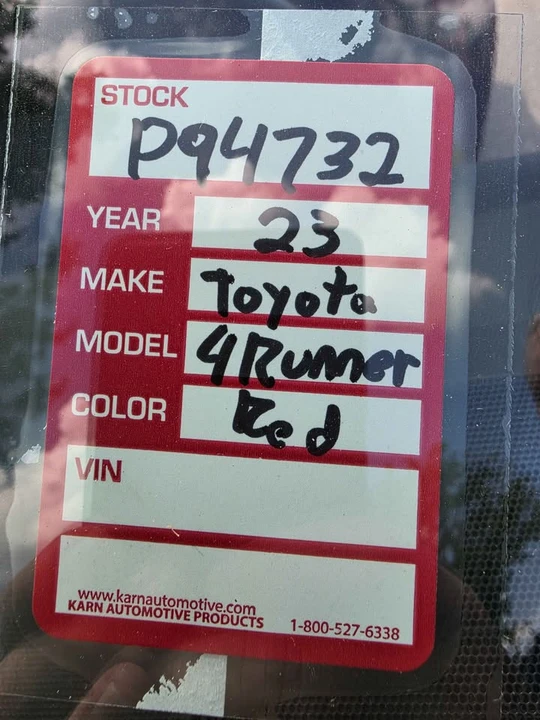 STOCK
P94732
YEAR 23
MAKE Toyota
MODEL 4Runner
COLOR Red
VIN
www.karnautomotive.com
KARN AUTOMOTIVE PRODUCTS 1-800-527-6338